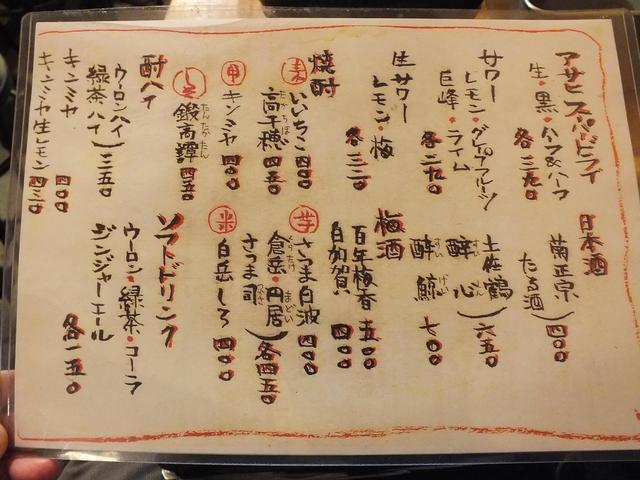 アサヒスーパードライ
生・黒・ハーフ&ハーフ
各三九〇
サワー
レモン・グレープフルーツ
巨峰・ライム
各二九〇
生サワー
レモン・梅
各三三〇
焼酎
麦
いいちこ 四〇〇
高千穂 四五〇
たかちほ
甲
キンミヤ 四〇〇
しそ
鍛高譚 四五〇
たんたかたん
酎ハイ
ウーロンハイ
緑茶ハイ
三五〇
キンミヤ 四〇〇
キンミヤ生レモン 四三〇
日本酒
菊正宗
たる酒
四〇〇
土佐鶴
酔心
すいしん
六五〇
酔鯨 七〇〇
すいげい
梅酒
百年梅香 五〇〇
白加賀 四〇〇
芋
さつま白波 四〇〇
倉岳・円居
まどい
さつま司
各四五〇
米
白岳しろ 四〇〇
ソフトドリンク
ウーロン・緑茶・コーラ
ジンジャーエール
各一五〇